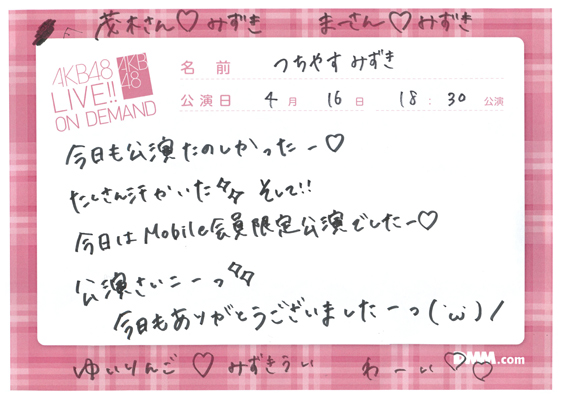 茂木さん♡みずき まーさん♡みずき
AKB48
LIVE!!
ON DEMAND
AKB
48
名前 つちやすみずき
公演日 4月 16日 18:30 公演
今日も公演たのしかったー♡
たくさん汗かいた そして!!
今日はMobile会員限定公演でしたー♡
公演さいこーっ
今日もありがとうございましたーっ(˙ω˙)/
ゆいりんご♡みずきうい わーい♡♡
DMM.com